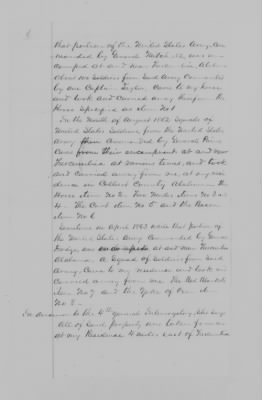 that portion of the United States Army com
manded by General Mitchell, was en
camped at and near Tuscumbia, Alabama
About 100 Soldiers from said Army Commanded
by one Captain came to my house
and took and carried away from me the
Horse specified as item No 1
In the Month of August 1862 Squads of
United States Soldiers from the United States
Army commanded by General
Came from their encampment at and near
Tuscumbia at various times, and took
and carried away from me, at my resi
dence in Colbert County Alabama the
Horse item No 2. Two Mules item No 3 and
4. The Cart item No 5 and the Bacon
item No 6
Sometime in April 1863 while that portion of
the United States Army Commanded by General
Dodge, was at and near Tuscumbia
Alabama. A Squad of Soldiers from said
Army, Came to my residence and took and
carried away from me. The
item No 7 and the Yoke of Oxen item
No 8.
In answer to the 4th general Interrogatory, he says
All of said property was taken from me
at my Residence 4 miles east of Tuscumbia